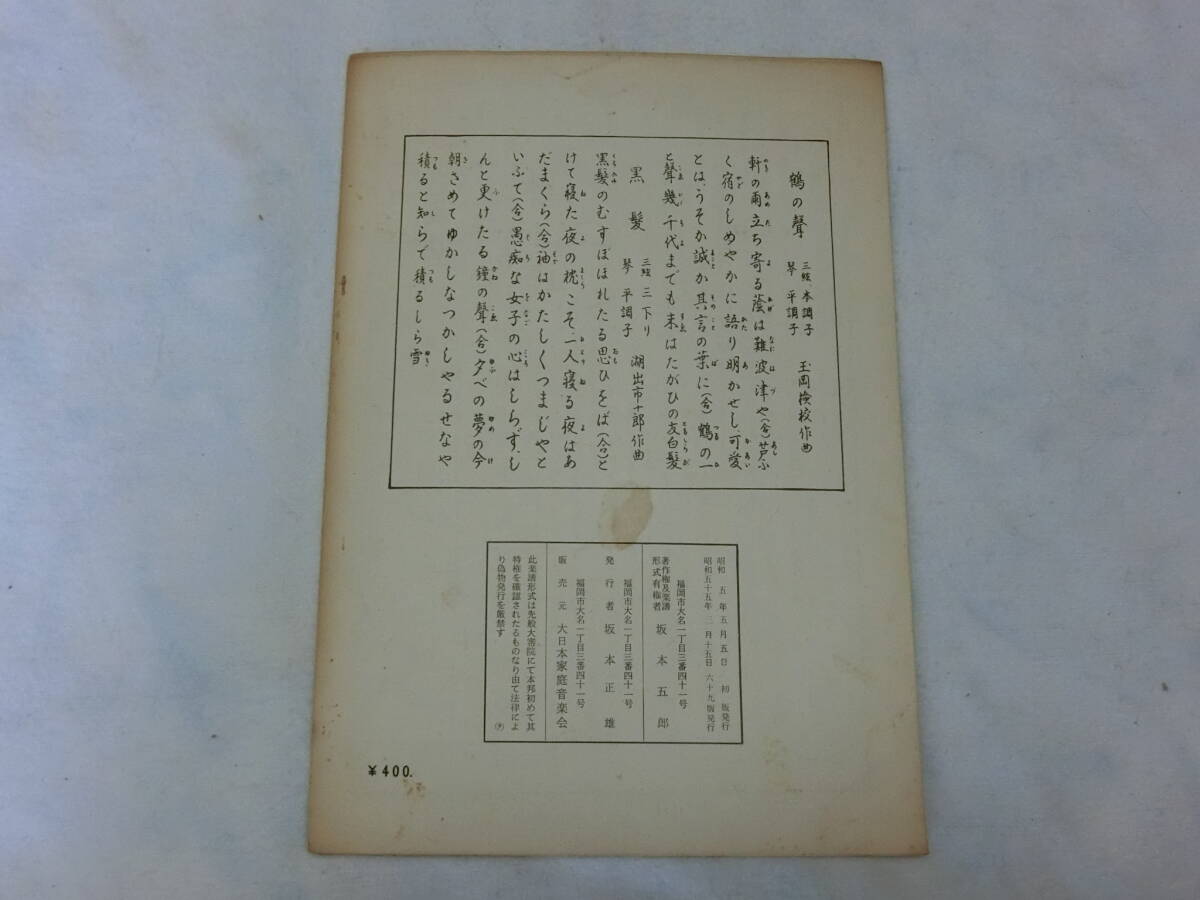 鶴の聲
三絃 本調子
琴 平調子
玉岡検校作曲
軒の雨立ち寄る蔭は難波津や(合)芦ふ
く宿のしめやかに語り明かせし、可愛
とは、うそか誠か其言の葉に(合)鶴の一
と聲幾千代までも末はたがひの友白髪
黒髪
三絃 三下り
琴 平調子
湖出市十郎作曲
黒髪のむすぼほれたる思ひをば(合)と
けて寝た夜の枕こそ、一人寝る夜はあ
だまくら(合)袖はかたしくつまじやと
いふて(合)愚痴な女子の心はしらず、し
んと更けたる鐘の聲(合)夕べの夢の今
朝さめてゆかしなつかしやるせなや
積ると知らで積るしら雪
昭和五年五月五日 初版発行
昭和五十五年二月十五日 六十九版発行
福岡市大名一丁目三番四十一号
著作権及楽譜
形式有権者 坂本五郎
福岡市大名一丁目三番四十一号
発行者 坂本正雄
福岡市大名一丁目三番四十一号
販売元 大日本家庭音楽会
此楽譜形式は先般大審院にて本邦初めて其
特権を確認されたるものなり由て法律によ
り偽物発行を厳禁す
¥400.